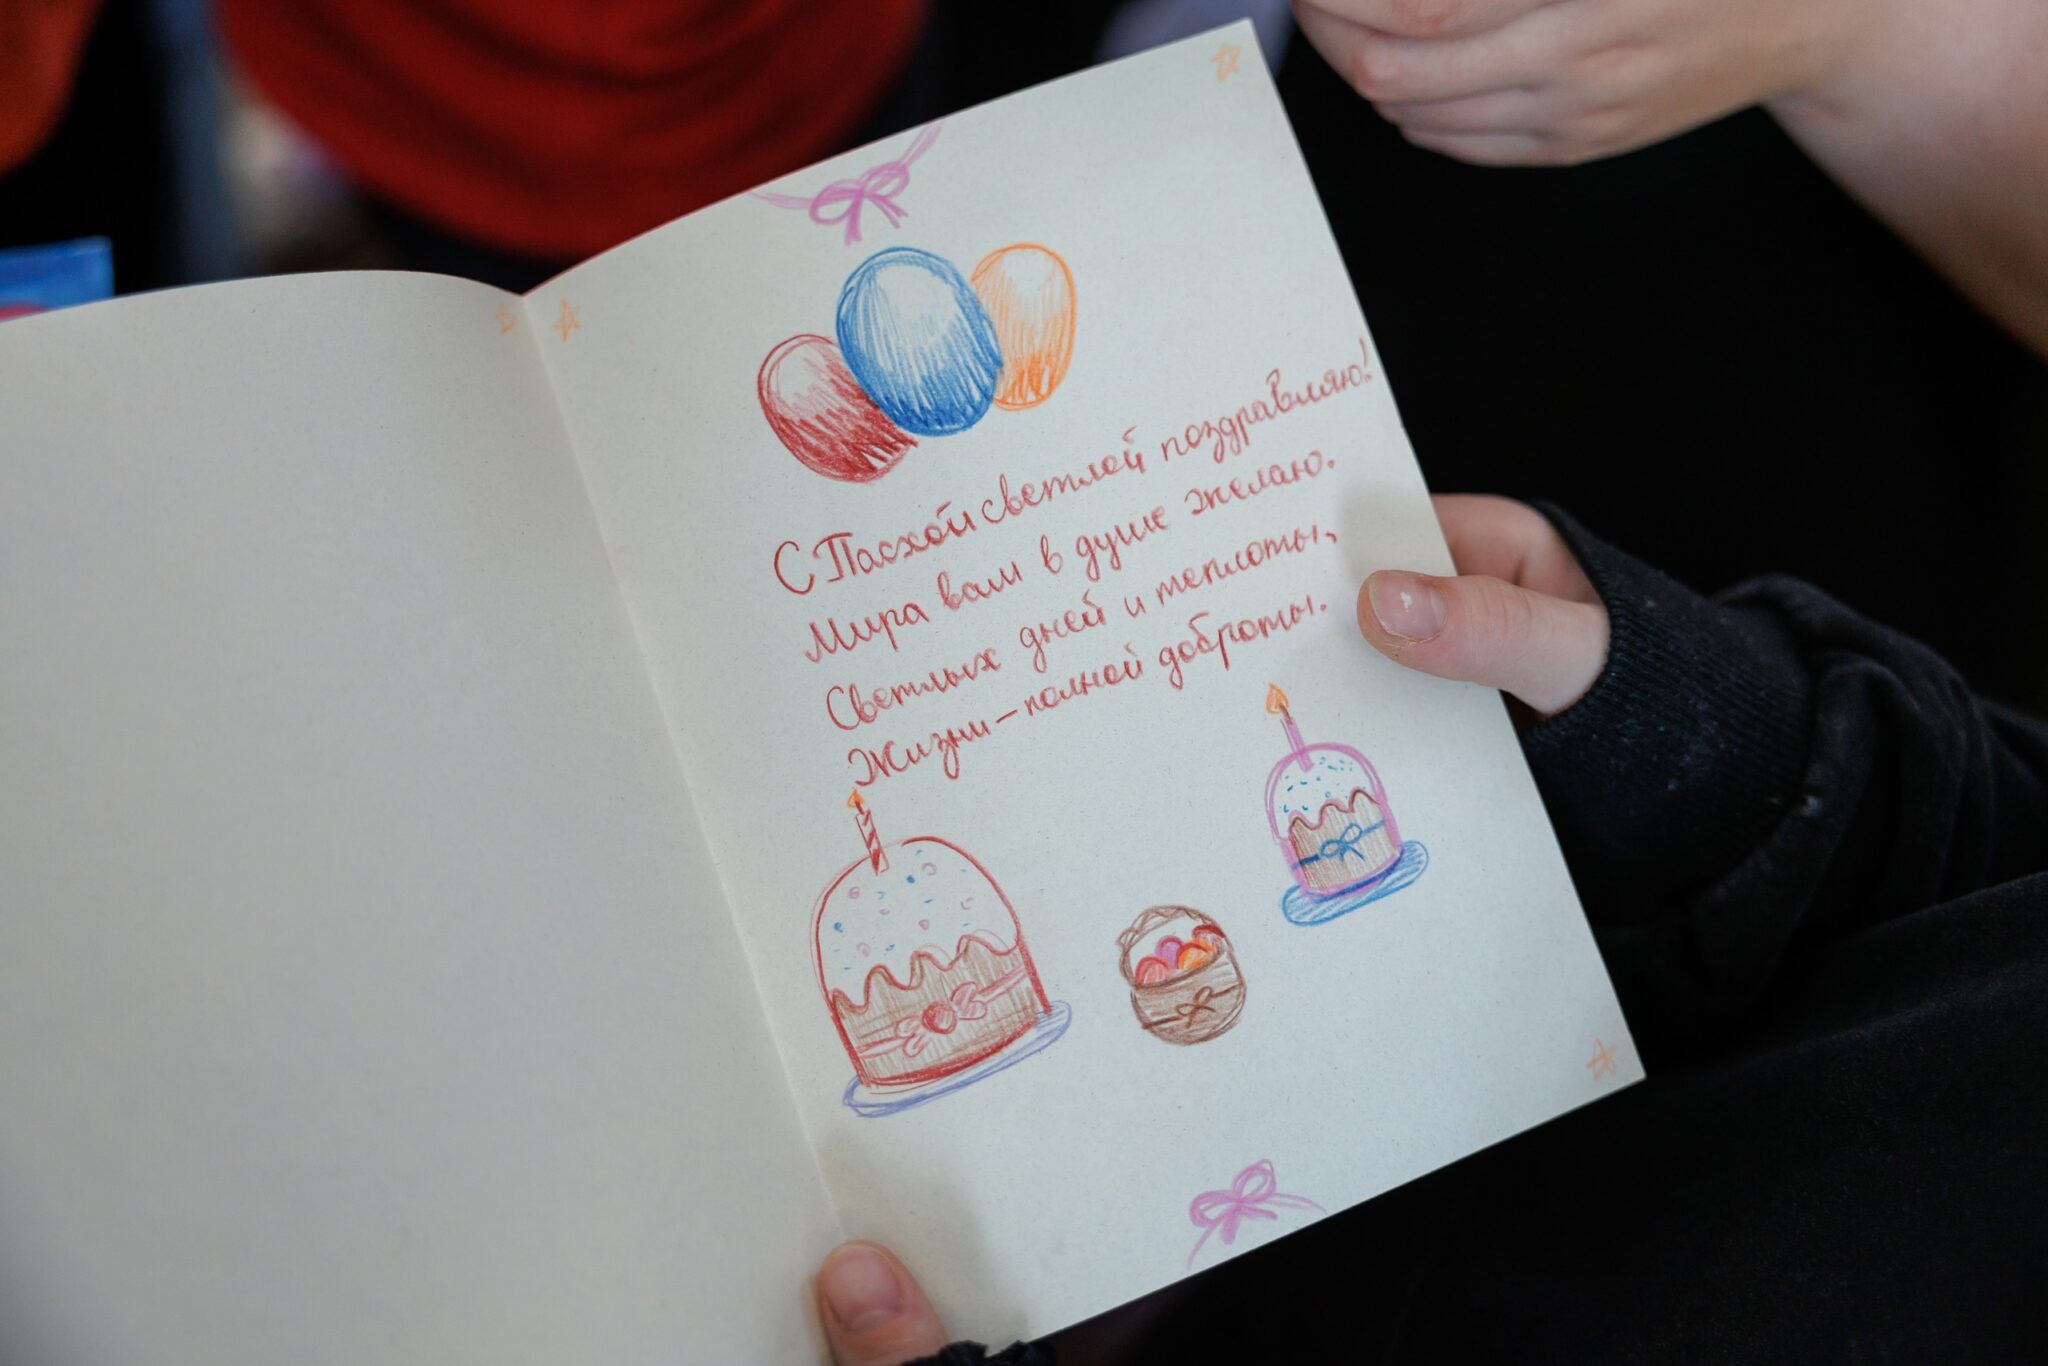 С Пасхой светлой поздравляю!
Мира вам в душе желаю.
Светлых дней и теплоты,
Жизни - полной доброты.